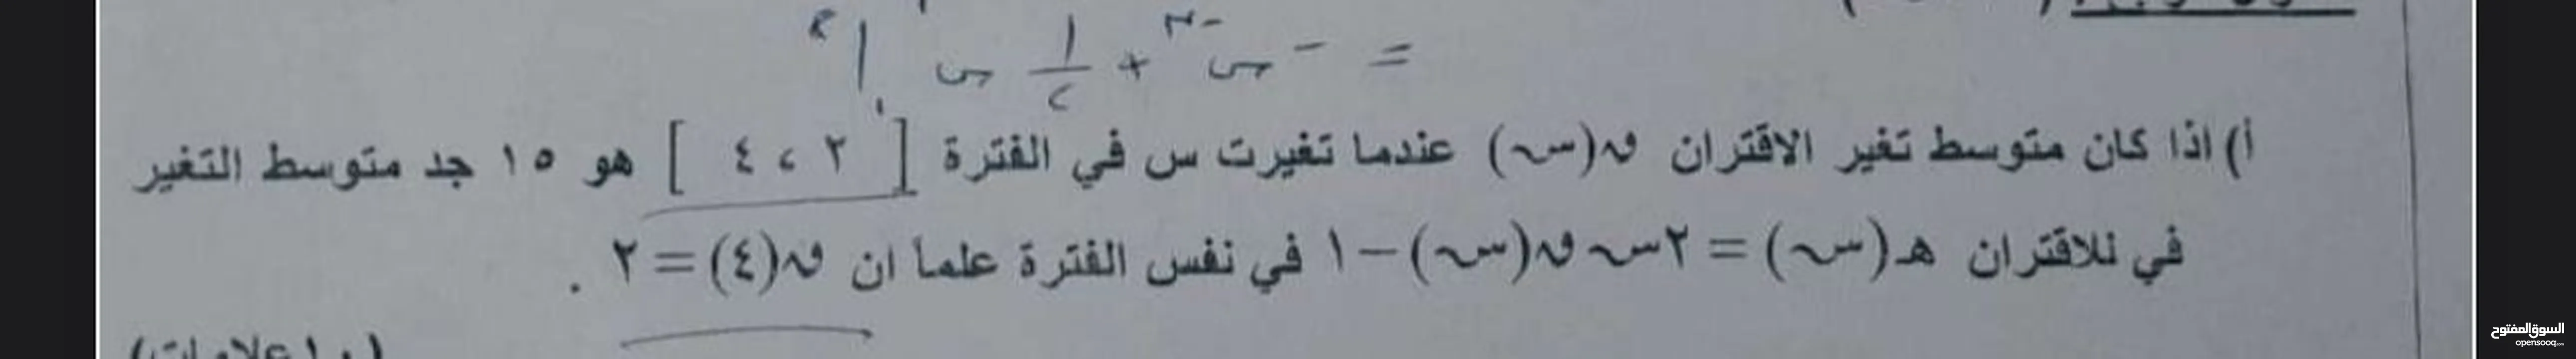 = - س^-٢ + ١/٢ س
أ) اذا كان متوسط تغير الاقتران ق(س) عندما تغيرت س في الفترة [ ٢ ، ٤ ] هو ١٥ جد متوسط التغير
في للاقتران هـ(س) = ٢س ق(س) - ١ في نفس الفترة علما ان ق(٤) = ٢ .
السوق المفتوح
opensooq.com